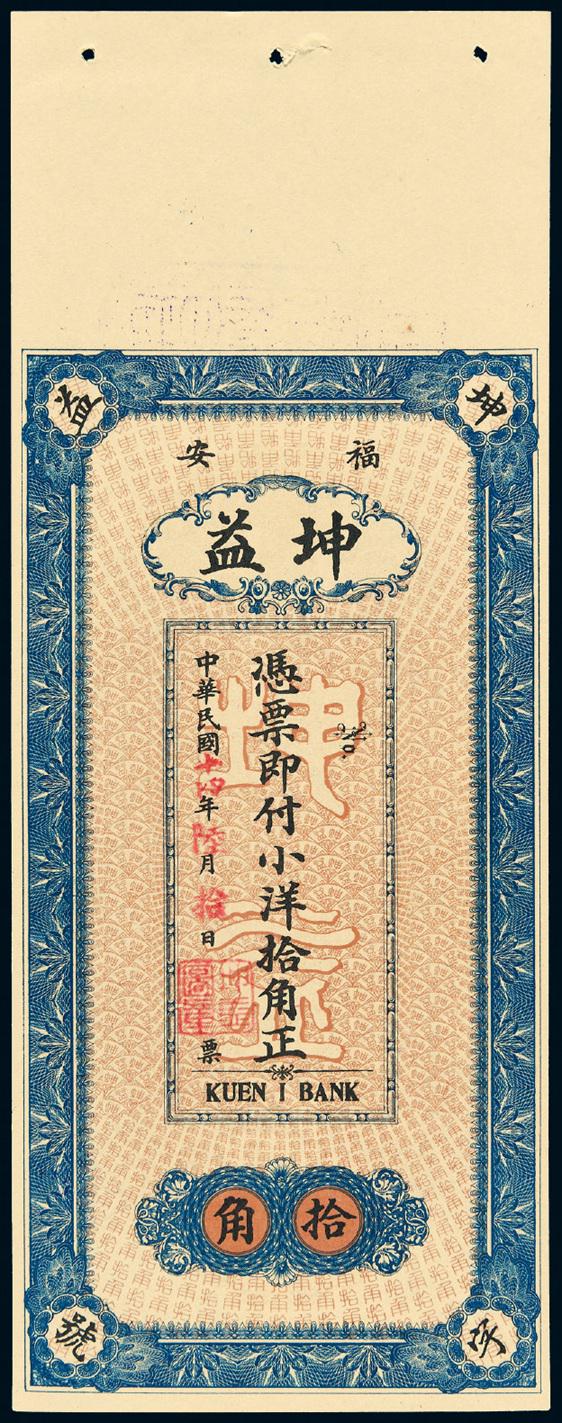 福安
坤益
No.
憑票即付小洋拾角正
中華民國十四年陸月拾日
票
KUEN I BANK
拾角
坤
益
號